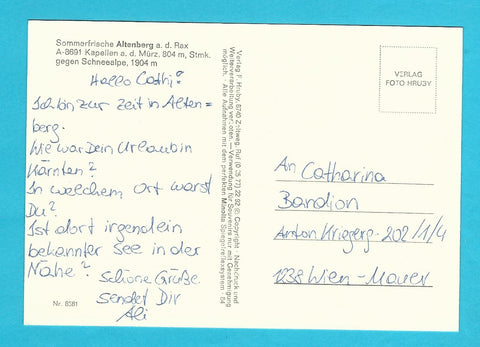 Sommerfrische Altenberg a. d. Rax
A-8691 Kapellen a. d. Mürz, 804 m, Stmk.
gegen Schneealpe, 1904 m
Hallo Cathi!
Ich bin zur Zeit in Alten=
berg.
Wie war Dein Urlaub in
Kärnten?
In welchem Ort warst
Du?
Ist dort irgendein
bekannter See in der
Nähe?
Schöne Grüße
sendet Dir
Ali
Nr. 8581
Verlag F. Hruby, 8740 Zeltweg, Ruf (0 35 77) 22 92 © Copyright · Nachdruck und
Weiterverarbeitung verboten. – Verwendung für Souvenirs nur mit Genehmigung
möglich. · Alle Aufnahmen mit dem perfekten Minolta Spiegelreflexsystem / 84
VERLAG
FOTO HRUBY
An Catharina
Bandion
Anton Kriegerg. 202/1/4
1238 Wien - Mauer